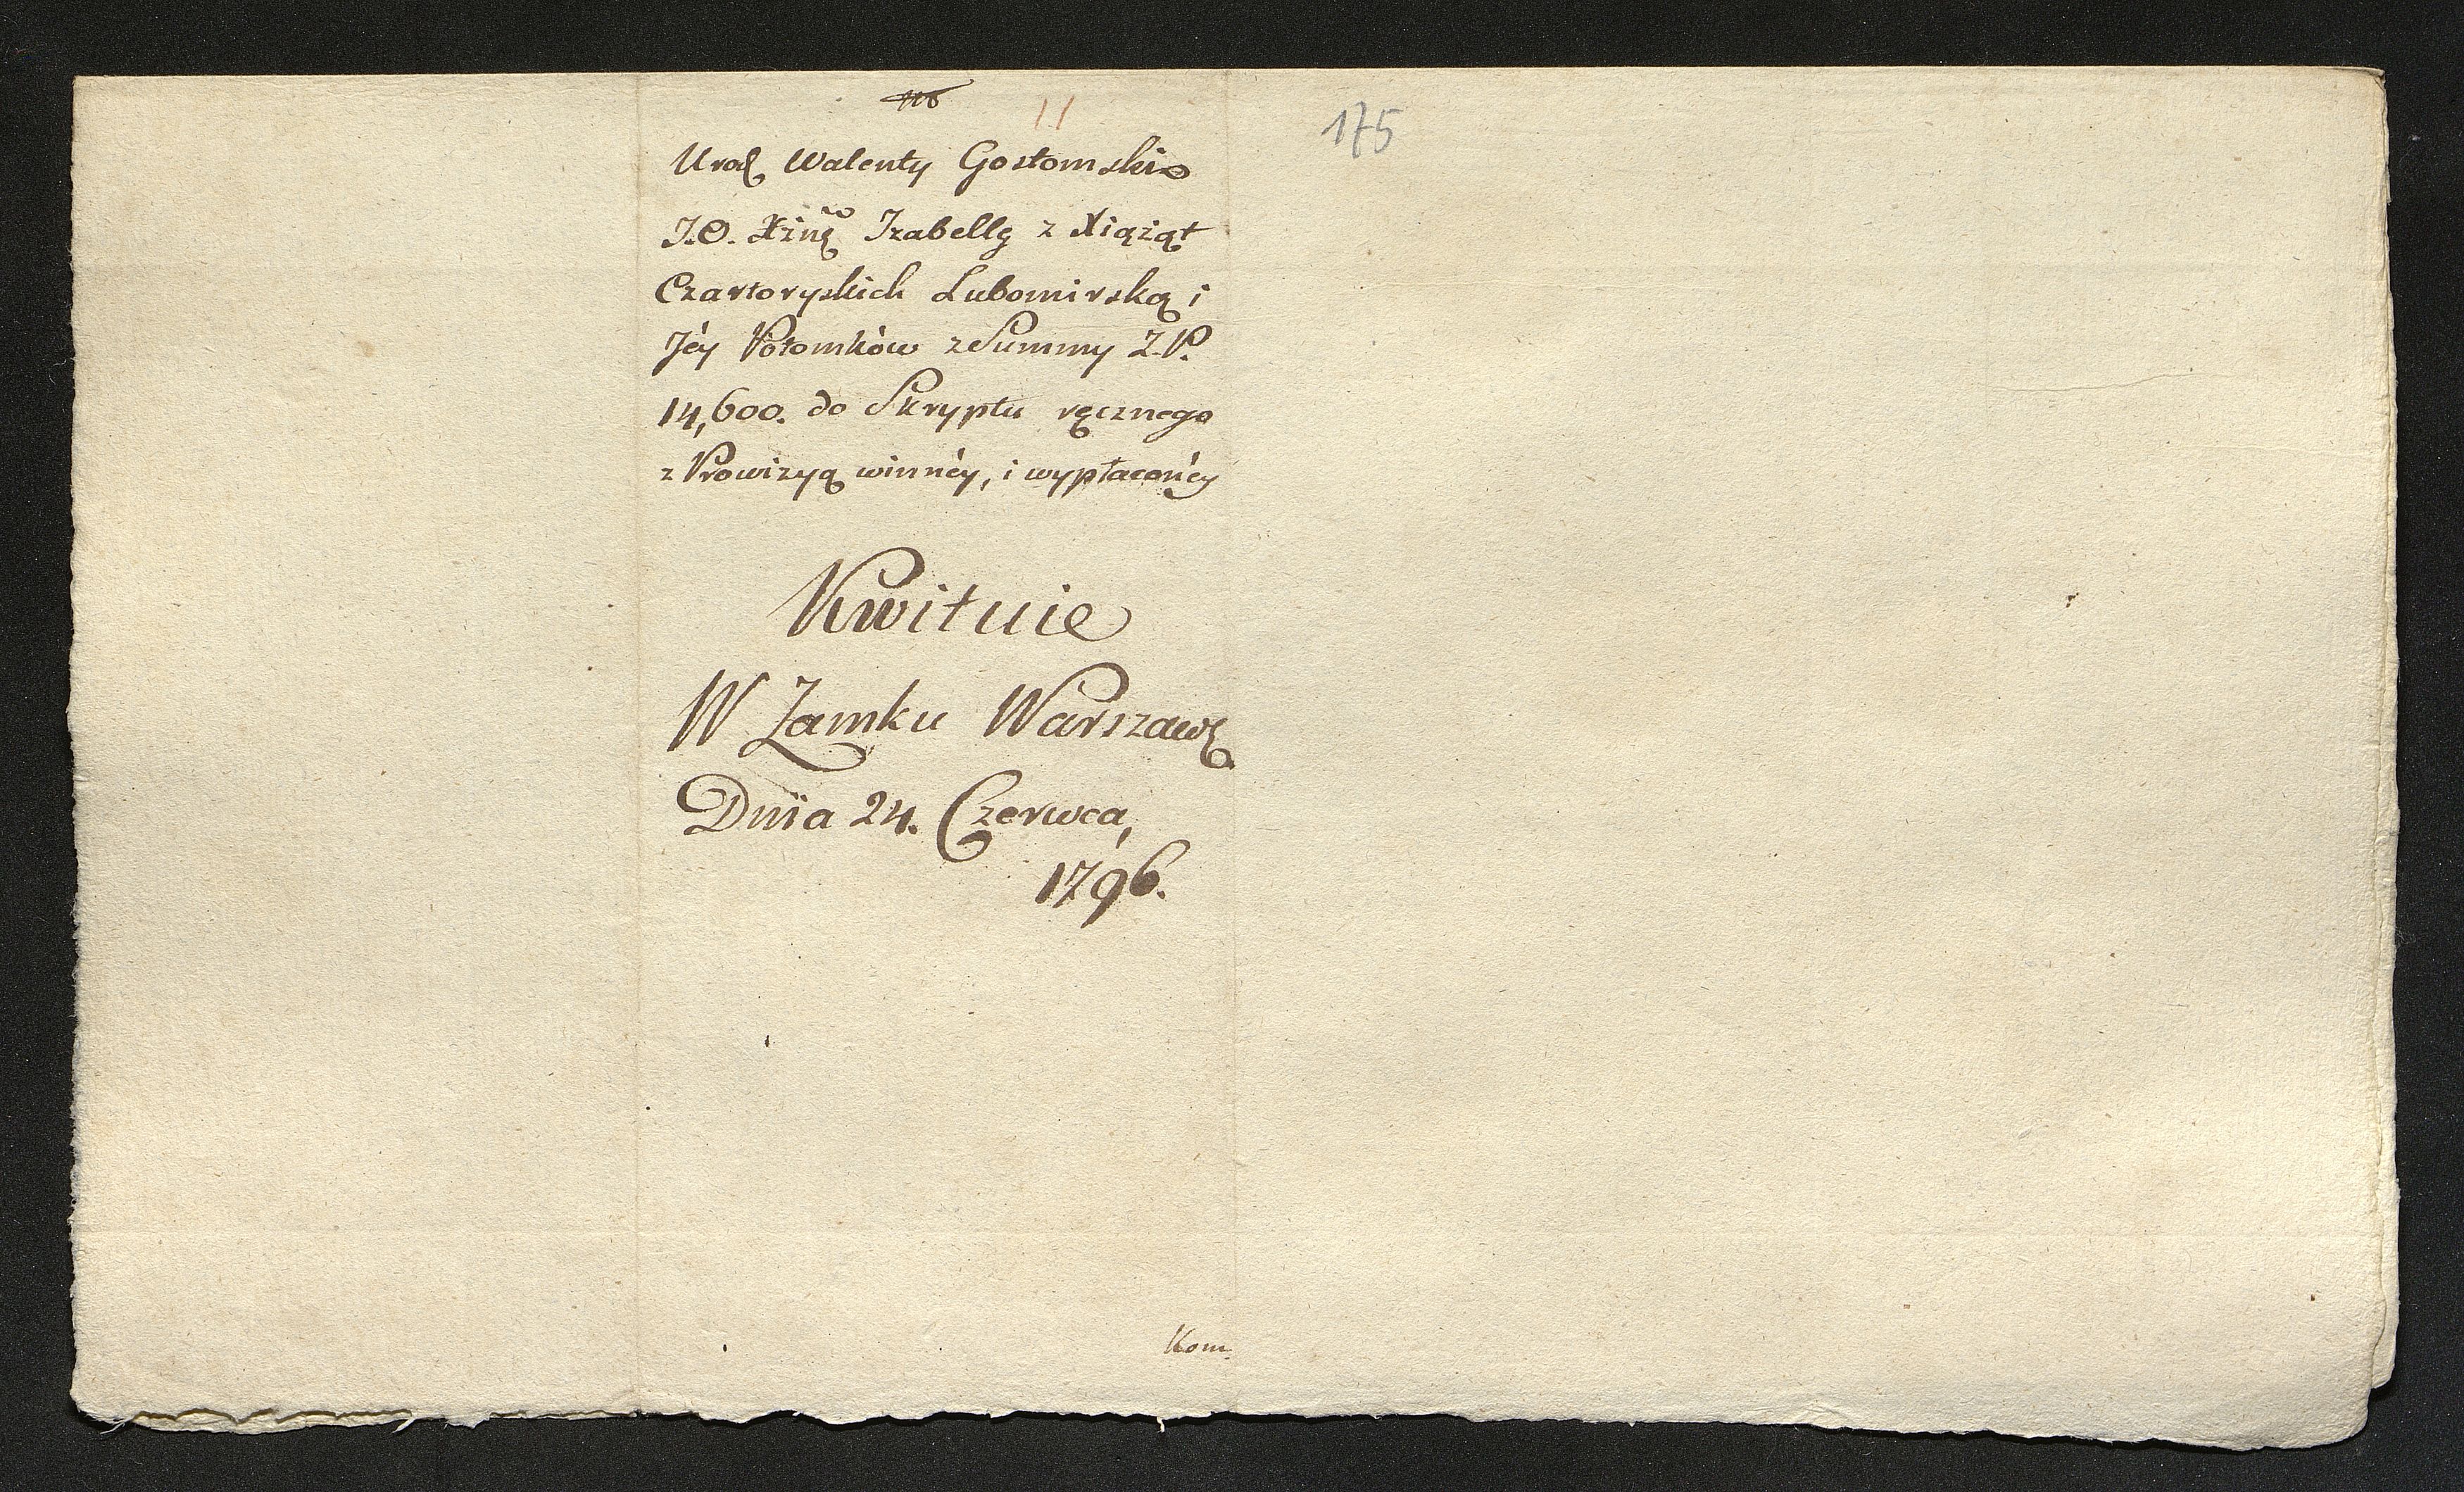 11
175
Urodz Walenty Gostomski
J.O. Xżnę Izabellę z Xiążąt
Czartoryskich Lubomirską i
Jéy Potomków z Summy Z.P.
14,600. do Skryptu ręcznego
z Prowizyą winnéy, i wypłaconéy
Kwituie
W Zamku Warszaws
Dnia 24. Czerwca,
1796.
Kom